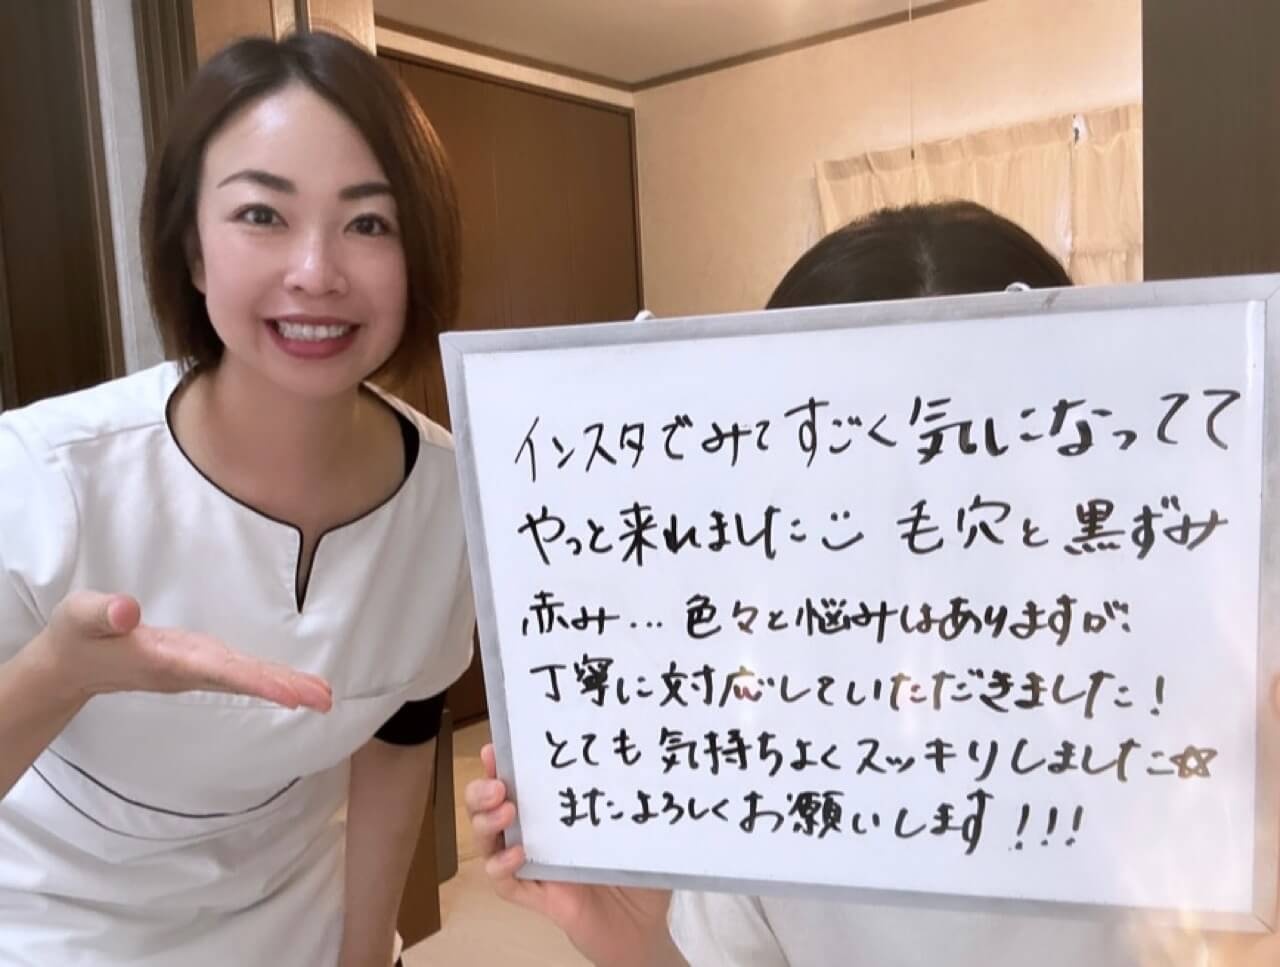 インスタでみてすごく気になってて
やっと来れました 毛穴と黒ずみ
赤み... 色々と悩みはありますが、
丁寧に対応していただきました!
とても気持ちよくスッキリしました☆
またよろしくお願いします!!!